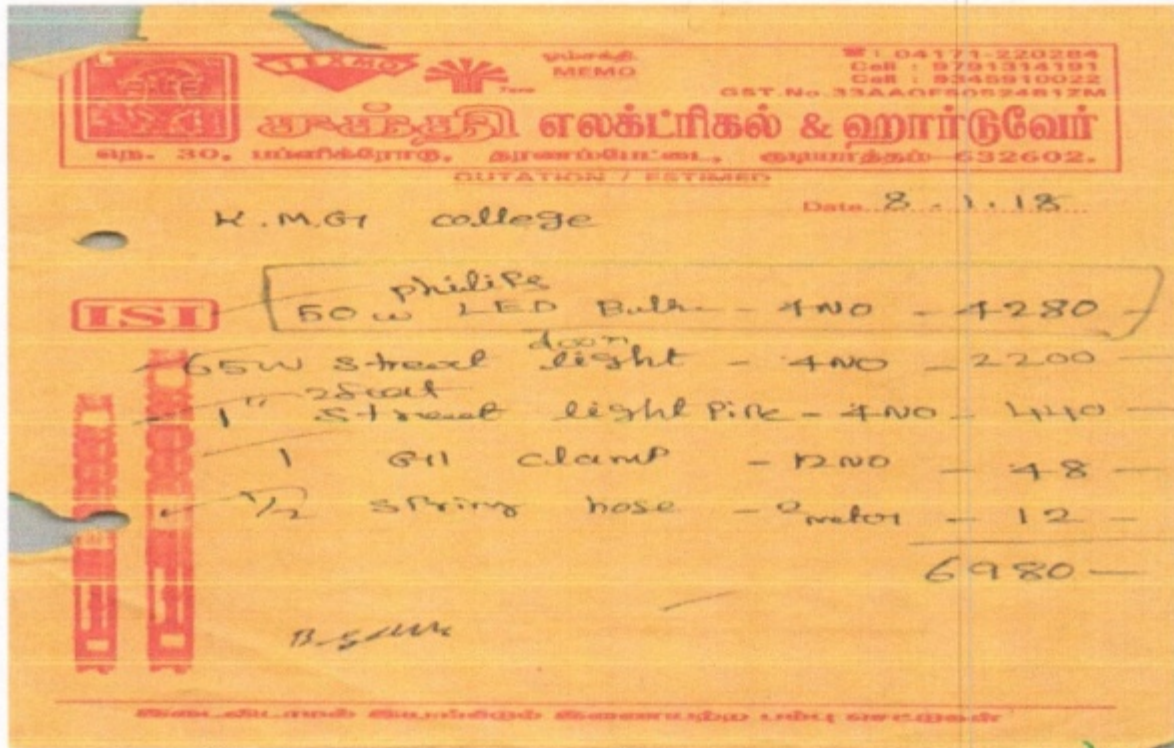 TEXMO
Taro
ஓம்சக்தி
MEMO
☎ : 04171-220284
Cell : 9791314191
Cell : 9345910022
GST.No.33AAOFS0524B1ZM
சக்தி எலக்ட்ரிகல் & ஹார்டுவேர்
நெ. 30, பம்ளிக்ரோடு, தரணம்பேட்டை, குடியாத்தம்-632602.
QUTATION / ESTIMED
Date 8.1.18
K.M.G college
ISI
philips
50w LED Bulb - 4NO - 4280
65w street light - 4NO - 2200
1" street light Pipe - 4NO - 440
1 GI clamp - 12NO - 48
1/2 spring hose - 2 meter - 12
6980